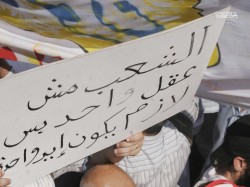 الشعب مش
عقل واحد بس
لازم يكون إيد